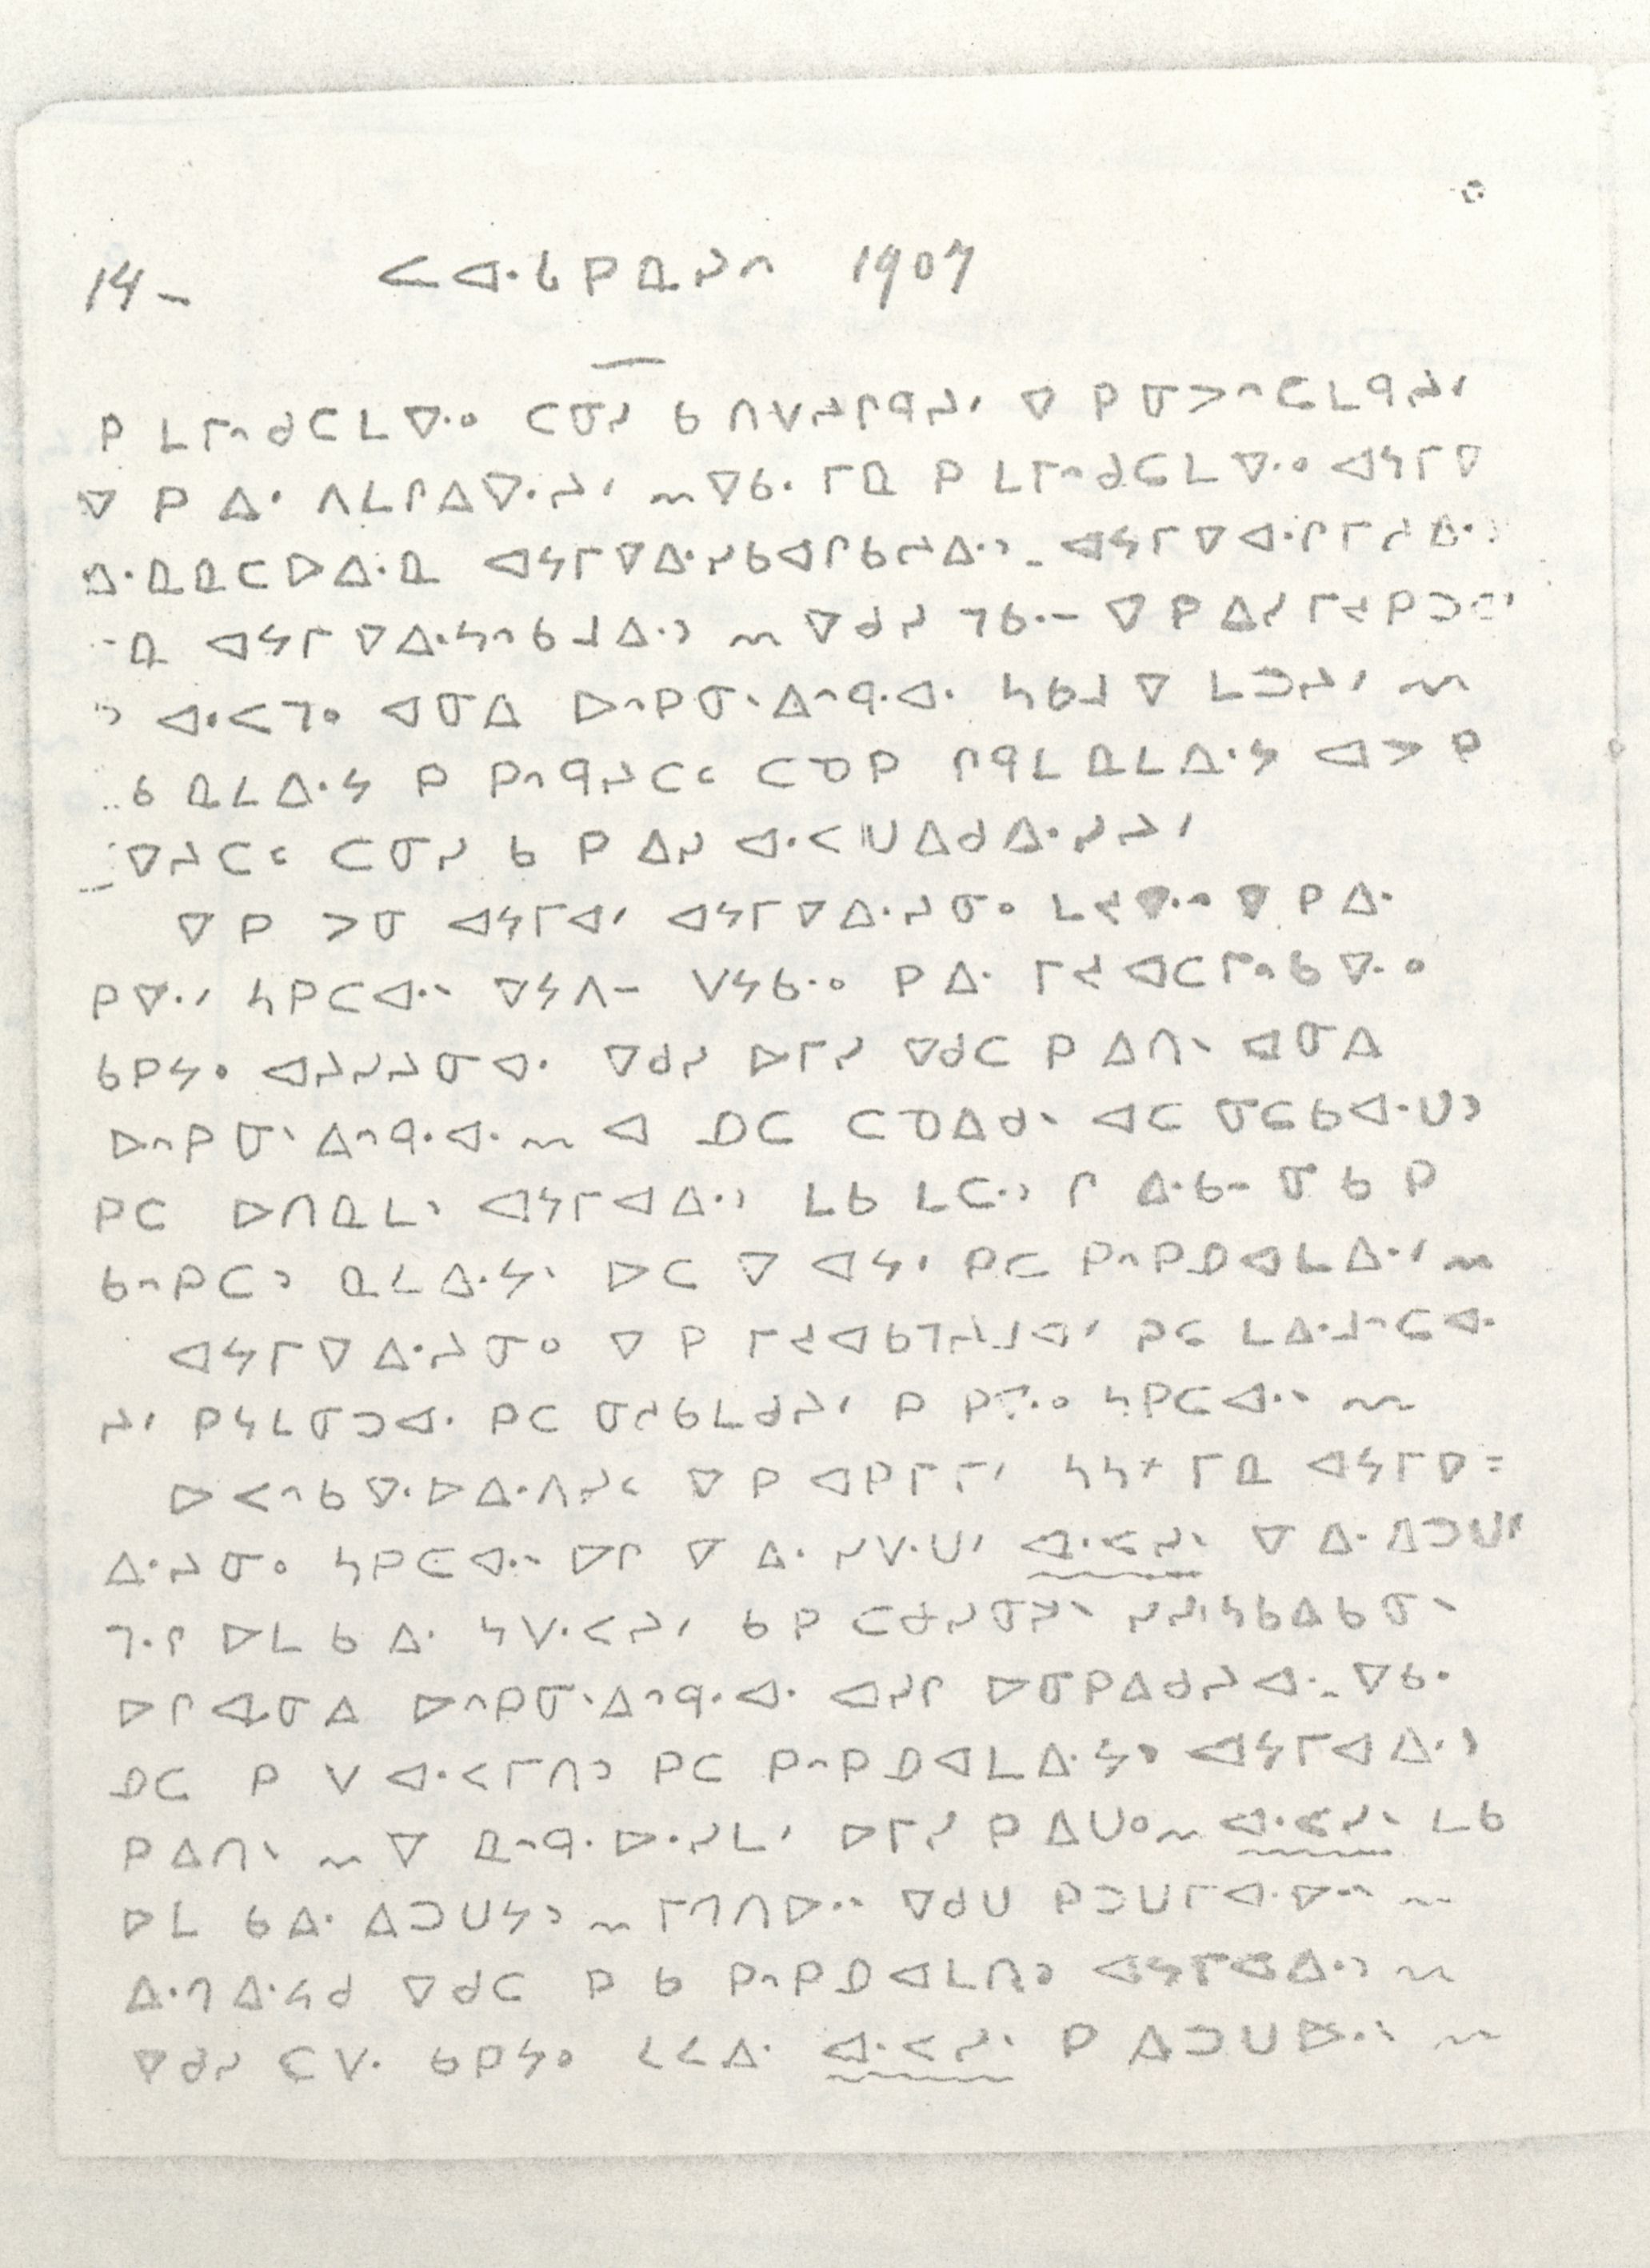 14- ᐸᐊᐧᑲᑭᓇᓯᐢ 1907
ᑭ ᒪᒥᐢᑯᑕᒪᐁᐧᐤ ᑕᓂᓯ ᑲ ᑎᐯᔨᒋᑫᔨᐟ ᐁ ᑭ ᓂᐳᐢᑕᒪᑫᔨᐟ
ᐁ ᑭ ᐃᐧ ᐱᒪᒋᐃᐁᐧᔨᐟ ~ ᐁᑲᐧ ᒥᓇ ᑭ ᒪᒥᐢᑯᑕᒪᐁᐧᐤ ᐊᔭᒥᐁ
ᐃᐧᓇᓇᑕᐅᐃᐧᓇ ᐊᔭᒥᐁᐃᐧᓯᑲᐊᒋᑲᓱᐃᐧᐣ - ᐊᔭᒥᐁᐊᐧᒋᒥᓱᐃᐧᐣ
ᓇ ᐊᔭᒥ ᐁᐃᐧᓴᐢᑲᒧᐃᐧᐣ ~ ᐁᑯᓯ ᒣᑲᐧ- ᐁ ᑭ ᐃᓯ ᒥᔪᑭᑐᑕ
ᐊᐧᐸᒣᐤ ᐊᓂᐃ ᐅᐢᑭᓂᐠᐃᐢᑫᐧᐊᐧ ᓴᑲᒧ ᐁ ᒪᑐᔨᐟ ~
ᑲ ᓇᒪᐃᐧᔭ ᑭ ᑭᐢᑫᔨᑕᒼ ᑕᓀᑭ ᒋᑫᒪ ᓇᒪᐃᐧᔭ ᐊᐳ ᑭ
ᐁᔨᑕᒼ ᑕᓂᓯ ᑲ ᑭ ᐃᓯ ᐊᐧᐸᑌᐃᑯᐃᐧᓯᔨᐟ
ᐁ ᑭ ᐳᓂ ᐊᔭᒥᐊᐟ ᐊᔭᒥᐁᐃᐧᔨᓂᐤ ᒪᔪᐁᐧᐢ ᐁ ᑭ ᐃᐧ
ᑭᐁᐧᐟ ᓴᑭᑕᐊᐧᕽ ᐁᔭᐱ- ᐯᔭᑲᐧᐤ ᑭ ᐃᐧ ᒥᔪ ᐊᑕᒥᐢᑲᐁᐧᐤ
ᑲᑭᔭᐤ ᐊᔨᓯᔨᓂᐊᐧ ᐁᑯᓯ ᐅᒥᓯ ᐁᑯᑕ ᑭ ᐃᑎᐠ ᐊᓂᐃ
ᐅᐢᑭᓂᐠᐃᐢᑫᐧᐊᐧ ~ ᐊ ᓄᑕ ᑕᓀᐃᑯᐠ ᐊᑕ ᓂᑕᑲᐊᐧᑌᐣ
ᑭᑕ ᐅᑎᓇᒪᐣ ᐊᔭᒥᐊᐃᐧᐣ ᒪᑲ ᒪᑕᐧᐣ ᒋ ᐃᐧᑲ- ᓂ ᑲ ᑭ
ᑲᐢᑭᑕᐣ ᓇᒪᐃᐧᔭᐠ ᐅᑕ ᐁ ᐊᔭᐟ ᑭᑕ ᑭᐢᑭᓄᐊᒪᐃᐧᐟ ~
ᐊᔭᒥᐁᐃᐧᔨᓂᐤ ᐁ ᑭ ᒥᔪᐊᑲᒣᔨᒧᐊᐟ ᑭᑕ ᒪᐃᐧᒧᐢᑕᐊᐧ
ᔨᐟ ᑭᓴᒪᓂᑐᐊᐧ ᑭᑕ ᓂᓱᑲᒪᑯᔨᐟ ᑭ ᑭᐁᐧᐤ ᓴᑭᑕᐊᐧᕽ ~
ᐅᐸᐢᑲᐁᐧᐅᐃᐧᐱᓯᒼ ᐁ ᑭ ᐊᑭᒥᒥᐟ ᓴᓴᕀ ᒥᓇ ᐊᔭᒥᐁ=
ᐃᐧᔨᓂᐤ ᓴᑭᑕᐊᐧᕽ ᐅᒋ ᐁ ᐃᐧ ᓯᐯᐧᑌᐟ ᐊᐧᐸᓯᕽ ᐁ ᐃᐧ ᐃᑐᑌᐟ
ᒣᐧᒋ ᐅᒪ ᑲ ᐃᐧ ᓴᐯᐧᐸᔨᐟ ᑲ ᑭ ᑕᑯᓯᓂᔨᐠ ᓯᓯᓴᑲᐃᑲᓂᐠ
ᐅᒋ ᐊᓂᐃ ᐅᐢᑭᓂᐠᐃᐢᑫᐧᐊᐧ ᐊᓯᒋ ᐅᓂᑭᐃᑯᔨᐊᐧ - ᐁᑲᐧ
ᓄᑕ ᑭ ᐯ ᐊᐧᐸᒥᑎᐣ ᑭᑕ ᑭᐢᑭᓄᐊᒪᐃᐧᔭᐣ ᐊᔭᒥᐊᐃᐧᐣ
ᑭ ᐃᑎᐠ ~ ᐁ ᓇᐢᑫᐧᐅᐧᓯᒪᐟ ᐅᒥᓯ ᑭ ᐃᑌᐤ ~ ᐊᐧᐸᓯᕽ ᒪᑲ
ᐅᒪ ᑲ ᐃᐧ ᐃᑐᑌᔭᐣ ~ ᒥᒉᑎᐅᐧᕽ ᐁᑯᑌ ᑭᑐᑌᒥᐊᐧᐅᐧᕽ ~
ᐃᐧᒉᐃᐧᓴᑯ ᐁᑯᑕ ᑭ ᑲ ᑭᐢᑭᓄᐊᒪᑎᐣ ᐊᔭᒥᐊᐃᐧᐣ ~
ᐁᑯᓯ ᑕᐯᐧ ᑲᑭᔭᐤ ᐸᐸᐃᐧ ᐊᐧᐸᓯᕽ ᑭ ᐃᑐᑌᐅᐧᐠ ~